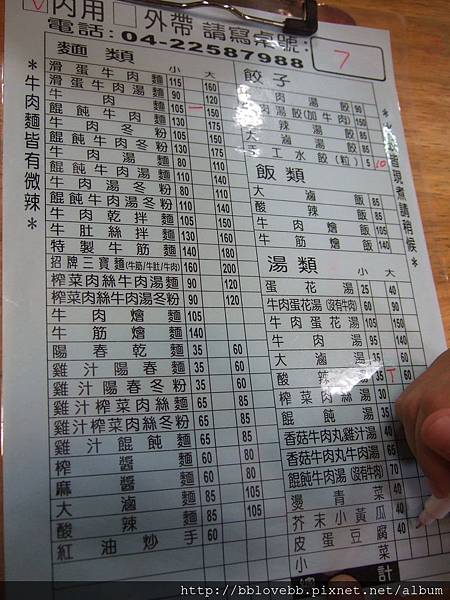 內用 外帶 請寫桌號: 7
電話: 04-22587988
*牛肉麵皆有微辣*
麵類 小 大
滑蛋牛肉麵 115 160
滑蛋牛肉湯麵 90 120
牛肉麵 105 150
餛飩牛肉麵 130 175
牛肉冬粉 105 150
餛飩牛肉冬粉 130 175
牛肉湯麵 80 110
餛飩牛肉湯麵
牛肉湯冬粉 80 110
餛飩牛肉湯冬粉
牛肉乾拌麵 105 150
牛肚絲拌麵 130
特製牛筋麵 140 180
招牌三寶麵(牛筋/牛肚/牛肉) 160 200
榨菜肉絲牛肉湯麵 90 120
榨菜肉絲牛肉湯冬粉 90 120
牛肉燴麵 105
牛筋燴麵 140
陽春乾麵 35 60
雞汁陽春麵 35 60
雞汁陽春冬粉 35 60
雞汁榨菜肉絲麵 65 85
雞汁榨菜肉絲冬粉 65 85
雞汁餛飩麵 65 85
榨醬麵 60 80
麻醬麵 60 80
大滷麵 85 105
酸辣麵 85 105
紅油炒手 60
餃子
肉湯餃 90
肉湯餃(加牛肉) 150
辣湯餃 85
大滷湯餃 85
手工水餃(粒) 5 10
飯類
大滷飯 85
酸辣飯 85
牛肉燴飯 105
牛筋燴飯 140
湯類 小 大
蛋花湯 25 40
牛肉蛋花湯(沒有牛肉) 60 90
牛肉蛋花湯 105 150
牛肉湯 95 140
大滷湯 35 60
酸辣湯 35 60
榨菜肉絲湯 30
餛飩湯 35
香菇牛肉丸雞汁湯 40
香菇牛肉丸牛肉湯 65
餛飩牛肉湯(沒有牛肉) 70
燙青菜 40
芥末小黃瓜 40
皮蛋豆腐 40
小菜
總計
http://bblovebb.pixnet.net/album